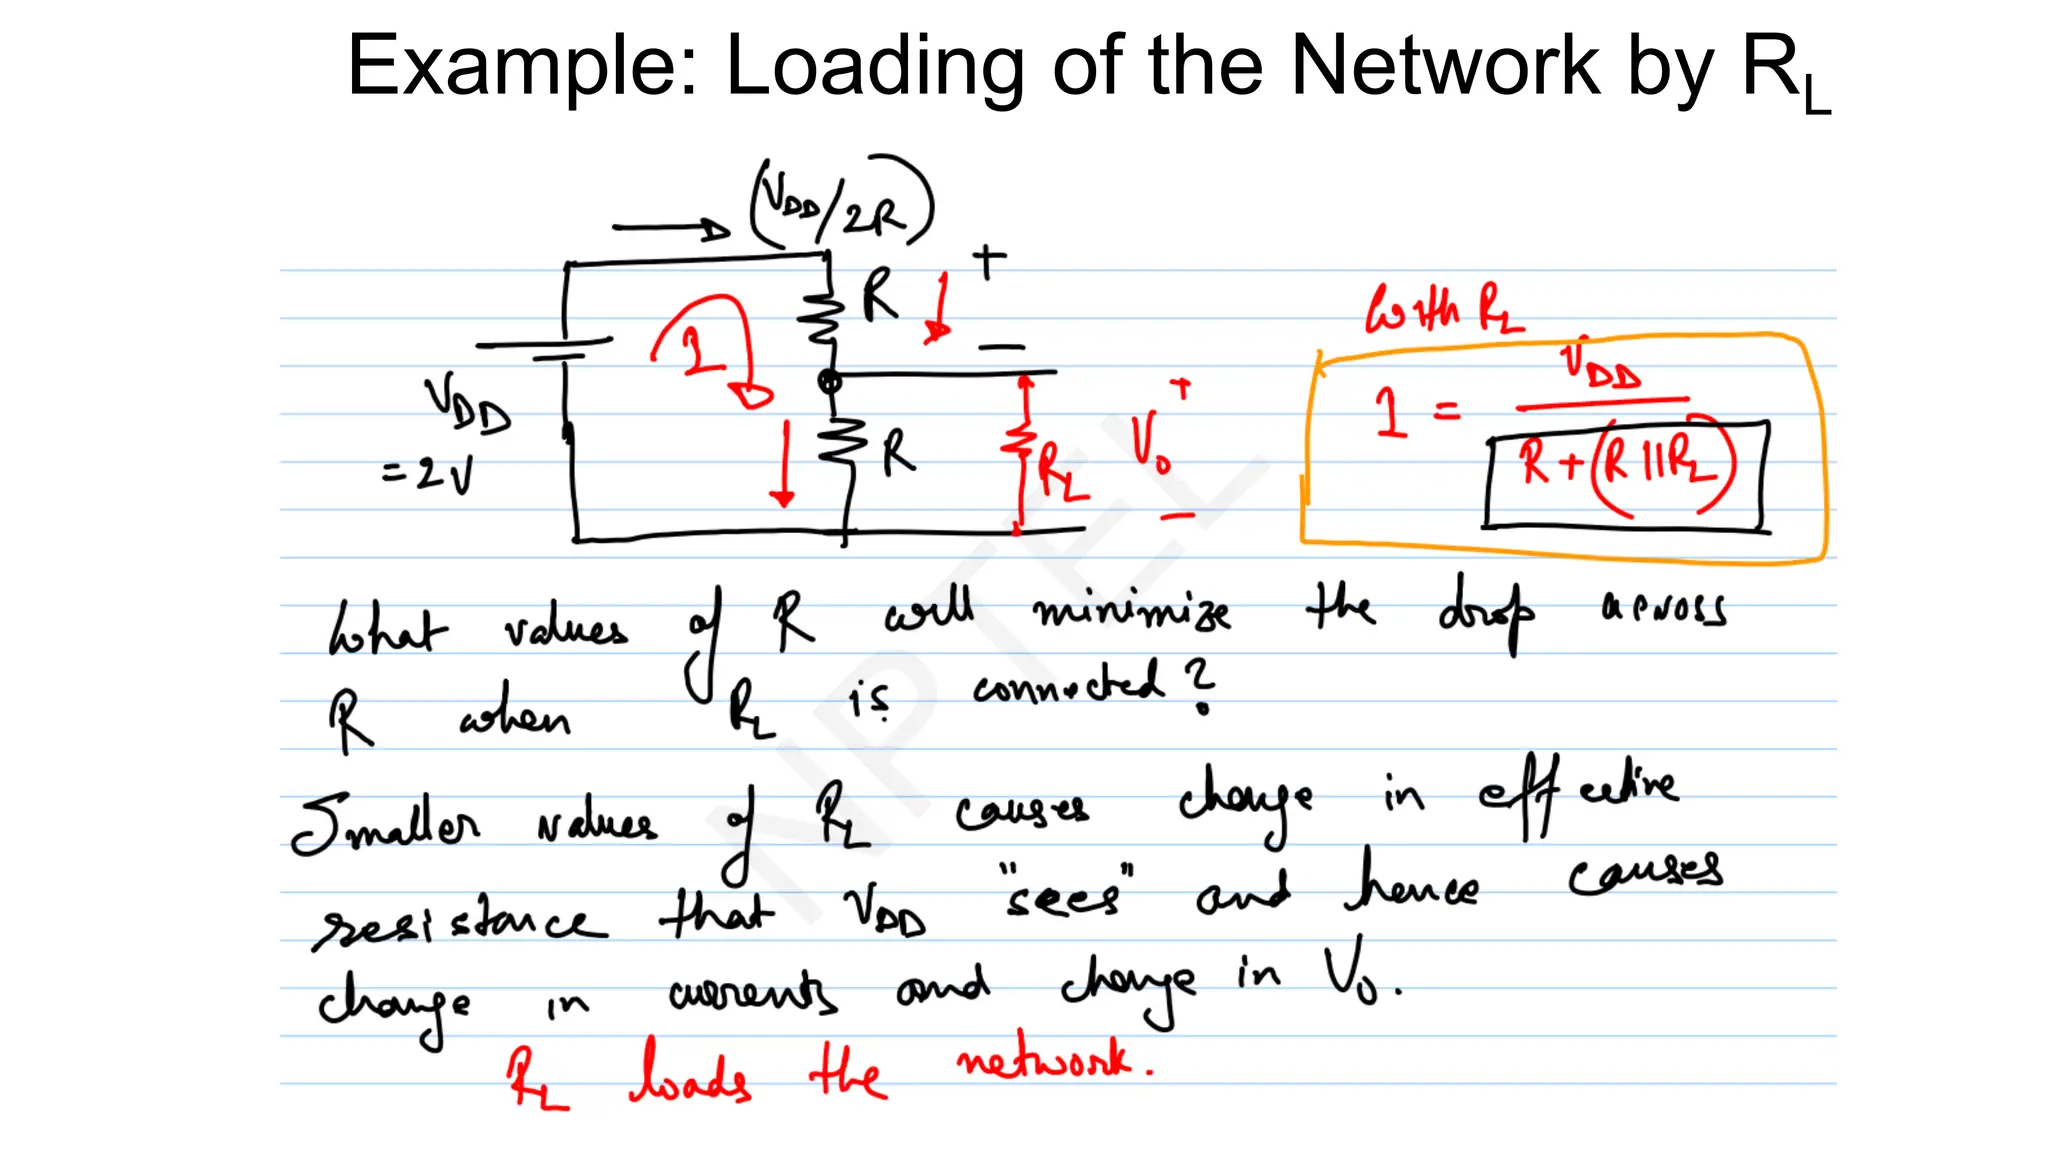 Example: Loading of the Network by RL
(VDD/2R)
R
+
−
with RL
I
VDD
= 2V
R
RL
+
V0
−
I = VDD
R + (R || RL)
What values of R will minimize the drop across
R when RL is connected?
Smaller values of RL causes change in effective
resistance that VDD "sees" and hence causes
change in currents and change in V0.
RL loads the network.
NPTEL